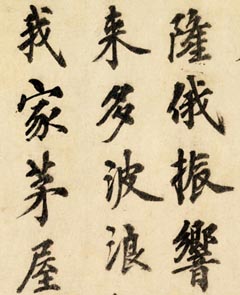 隆俄振響
来多波浪
我家茅屋